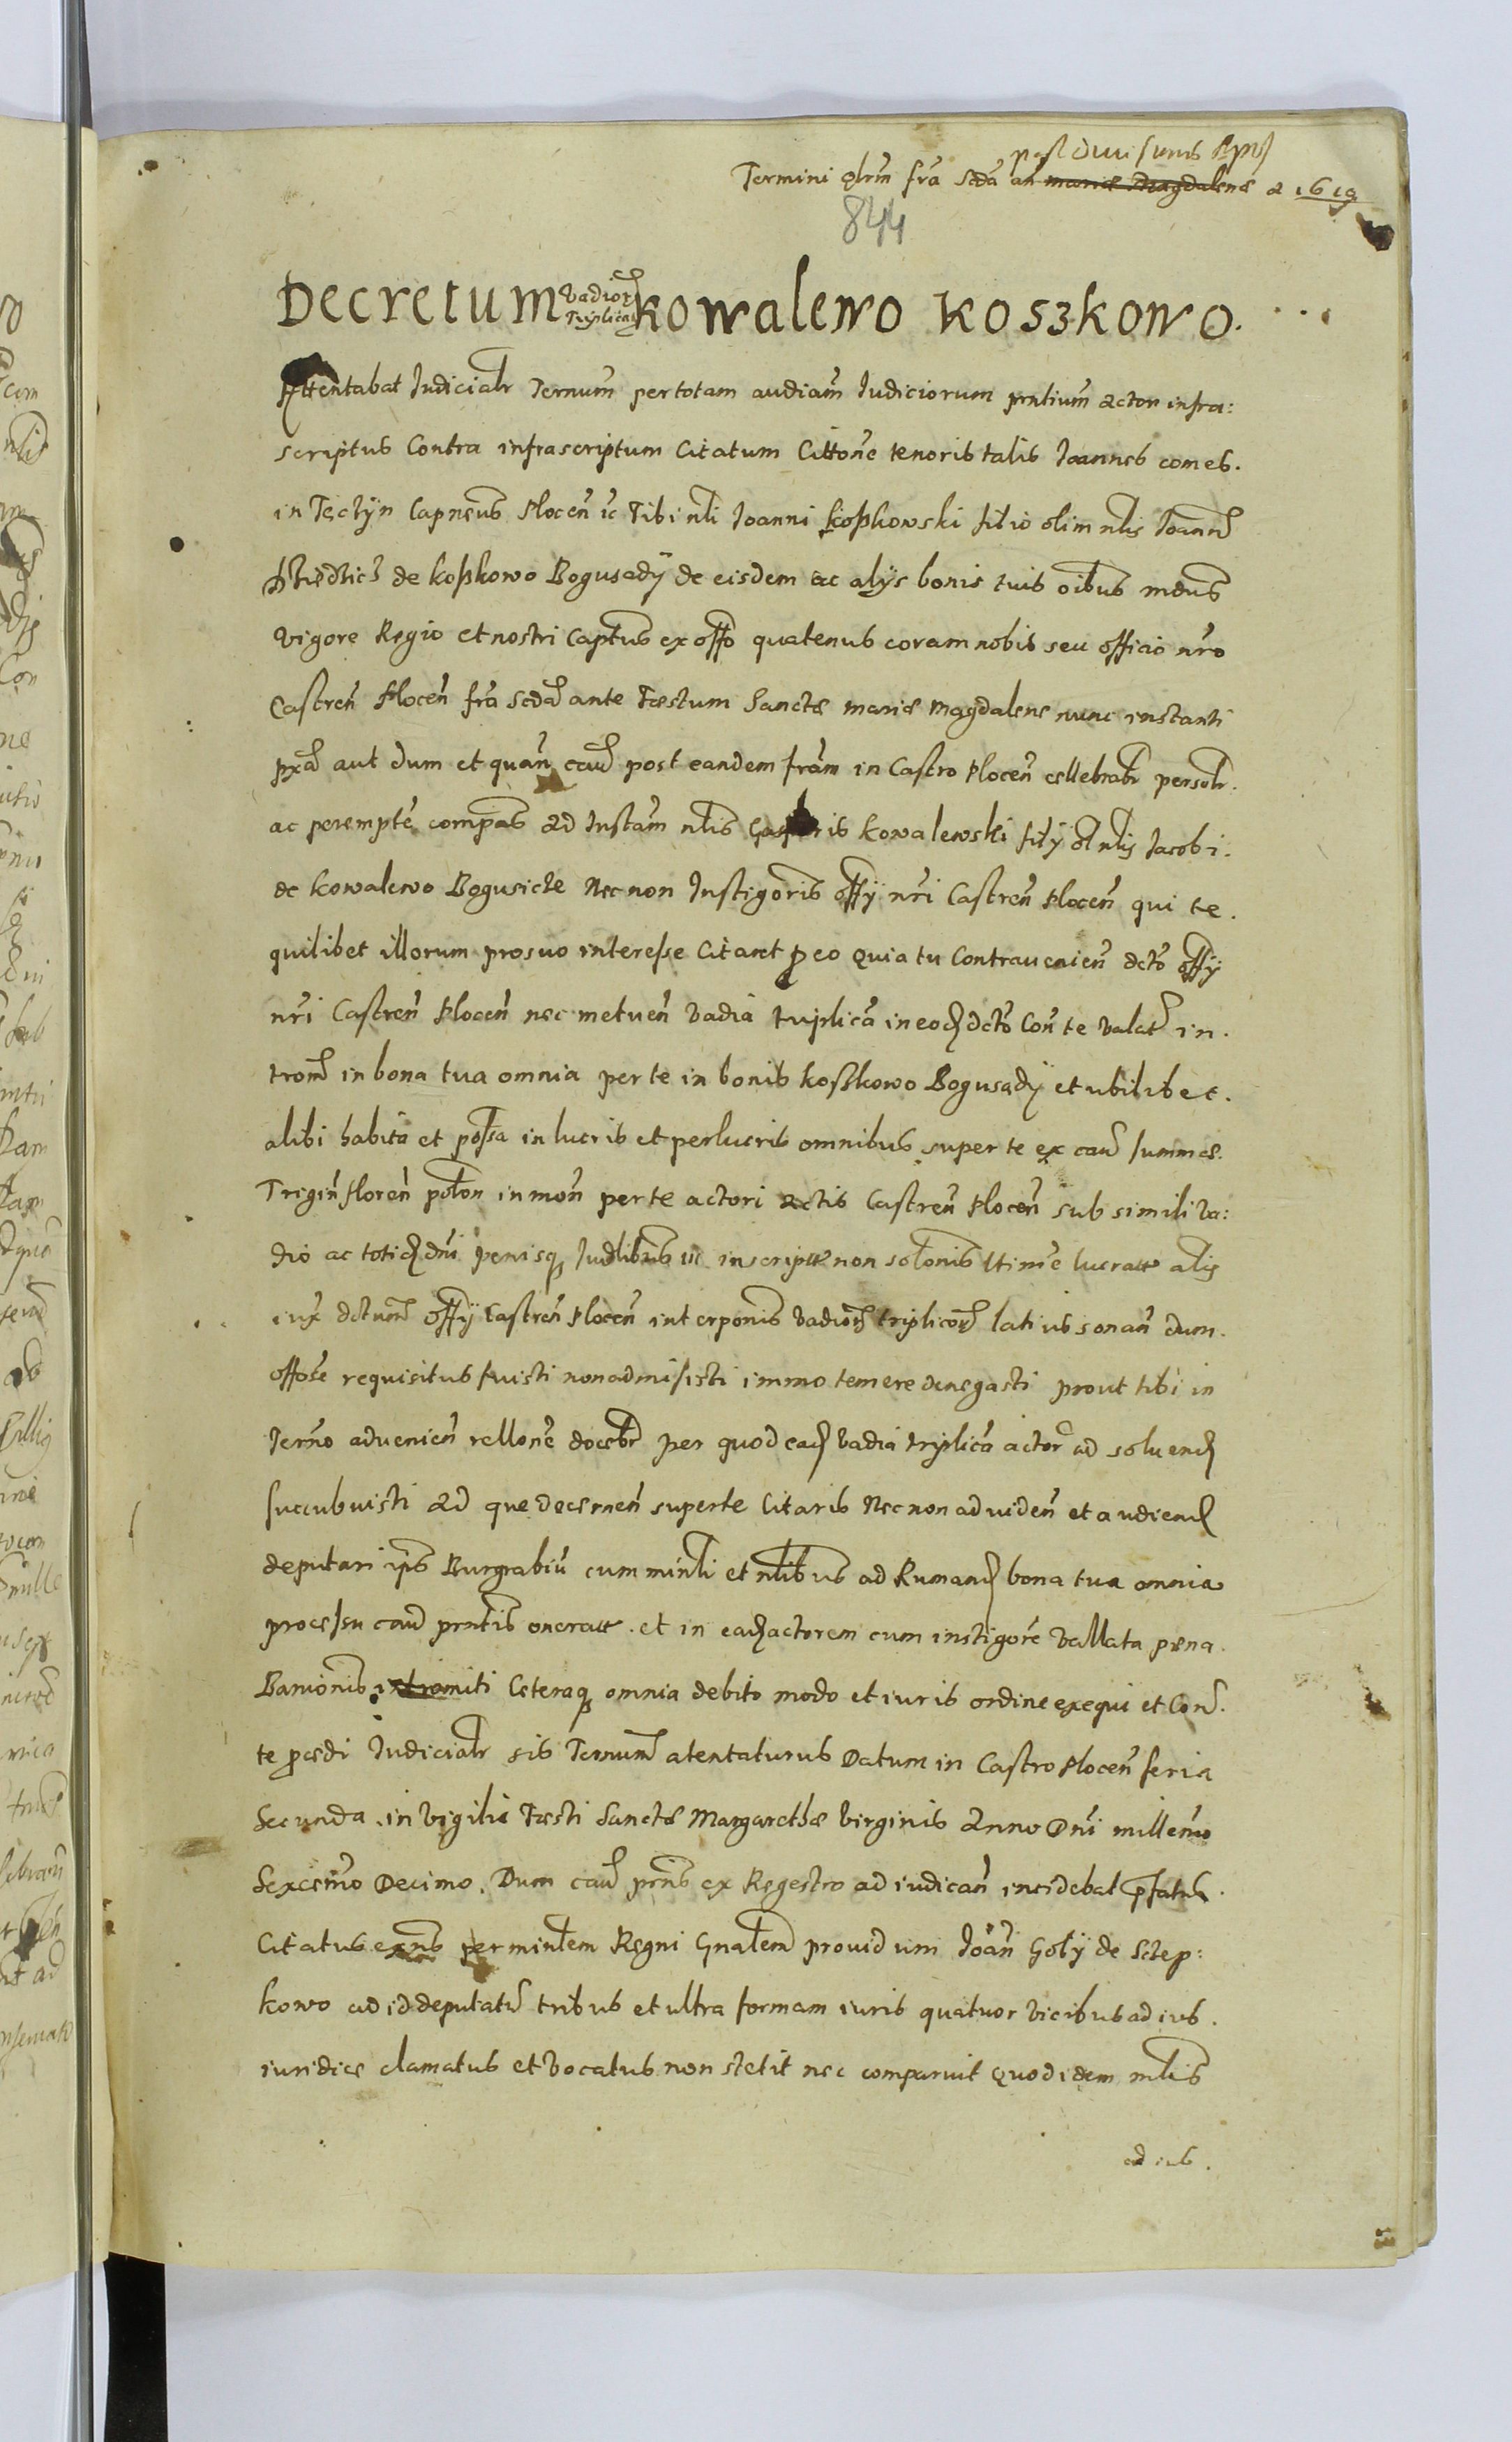 post divisionis Apłor
Termini qlrm fra Scda an mariæ Magdalenæ A 1619
844
Decretum vadiorū triplicm Kowalewo Koszkowo.
Attentabat Iudicialr Termum per totam audiam Iudiciorum pntium actor infra:
scriptus Contra infrascriptum Citatum Cittone tenoris talis Ioannes comes.
in Teczÿn Capneus Plocen ic Tibi nli Ioanni Koßkowski filio olim nlis Ioann
de Koßkowo Bogusadÿ de eisdem ac alÿs bonis tuis oibus mdus
vigore Regio et nostri Captus ex offo quatenus coram nobis seu officio nro
Castren Plocen fra Scda ante Fæstum Sanctæ mariæ Magdalenæ nunc instanti
pxa aut dum et quan cau post eandem fram in Castro Plocen cellebrabr personlr.
ac perempte compas ad Instam nlis Gasparis Kowalewski filÿ ol nlis Iacobi.
de Kowalewo Bogusicze Nec non Instigoris offÿ nri Castren Plocen qui te.
quilibet illorum pro suo interesse Citant p eo quia tu Contravenien dcto offÿ
nri Castren Plocen nec metuen vadia triplica in eod dcto Con te valat in.
trom in bona tua omnia per te in bonis Koszkowo Bogusadÿ et ubilibet.
alibi habita et possa in lucris et perlucris omnibus super te ex cau summæ.
Trigin floren polon in mon per te actori actis Castren Plocen sub simili va:
dio ac totid dni penisq Iudlibus ic inscriptæ non solonis ltime lucratæ alis
iux dctum offÿ Castren Plocen interponis vadior triplicor latius sonan dum.
offose requisitus fuisti non admisisti immo temere denegasti prout tibi in
Termo advenien rellone docebr per quod ead vadia triplica actor ad solvend
succubuisti Ad que decernen super te Citaris Nec non ad viden et audiend
deputari ips Burgrabiu cum minli et nlibus ad Rumand bona tua omnia
processu cau pntis oneratæ. et in ead actorem cum instigore vallata pœna.
Banionis intromiti Ceteraq omnia debito modo et iuris ordine exequi et Con.
te pcedi Iudicialr sis Termum atentaturus Datum in Castro Plocen feria
Secunda. in vigilia Fæsti Sanctæ Margarethæ virginis Anno Dni millemo
Sexcemo Decimo. Dum cau pns ex Regestro ad iudican incidebat pfatus.
Citatus exns per minlem Regni Gnalem providum Ioan Golÿ de Sczep:
kowo ad id deputatu tribus et ultra formam iuris quatuor vicibus ad ius.
iuridice clamatus et vocatus non stetit nec comparuit Quod idem nlis
ad ius.